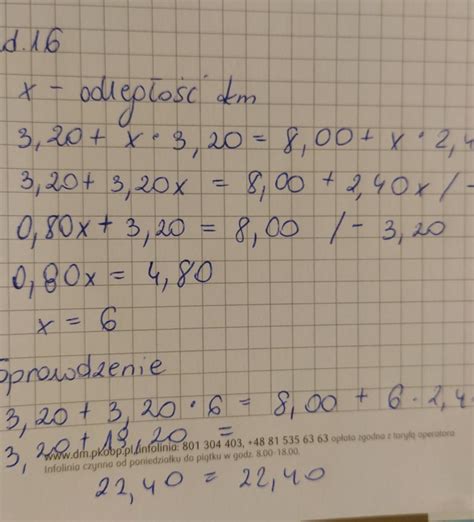 d.16
x - odległość km
3,20 + x · 3,20 = 8,00 + x · 2,4
3,20 + 3,20x = 8,00 + 2,40x / -
0,80x + 3,20 = 8,00 / - 3,20
0,80x = 4,80
x = 6
Sprawdzenie
3,20 + 3,20 · 6 = 8,00 + 6 · 2,4
3,20 + 19,20 =
www.dm.pkobp.pl/infolinia: 801 304 403, +48 81 535 63 63 opłata zgodna z taryfą operatora
Infolinia czynna od poniedziałku do piątku w godz. 8.00-18.00.
22,40 = 22,40